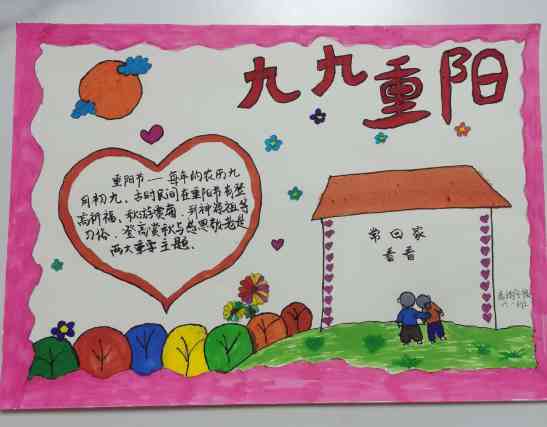 九九重阳
重阳节——每年的农历九
月初九、古时民间在重阳节有登
高祈福、秋游赏菊、
习俗、登高赏秋与感恩敬老是
两大重要主题、
常回家
看看